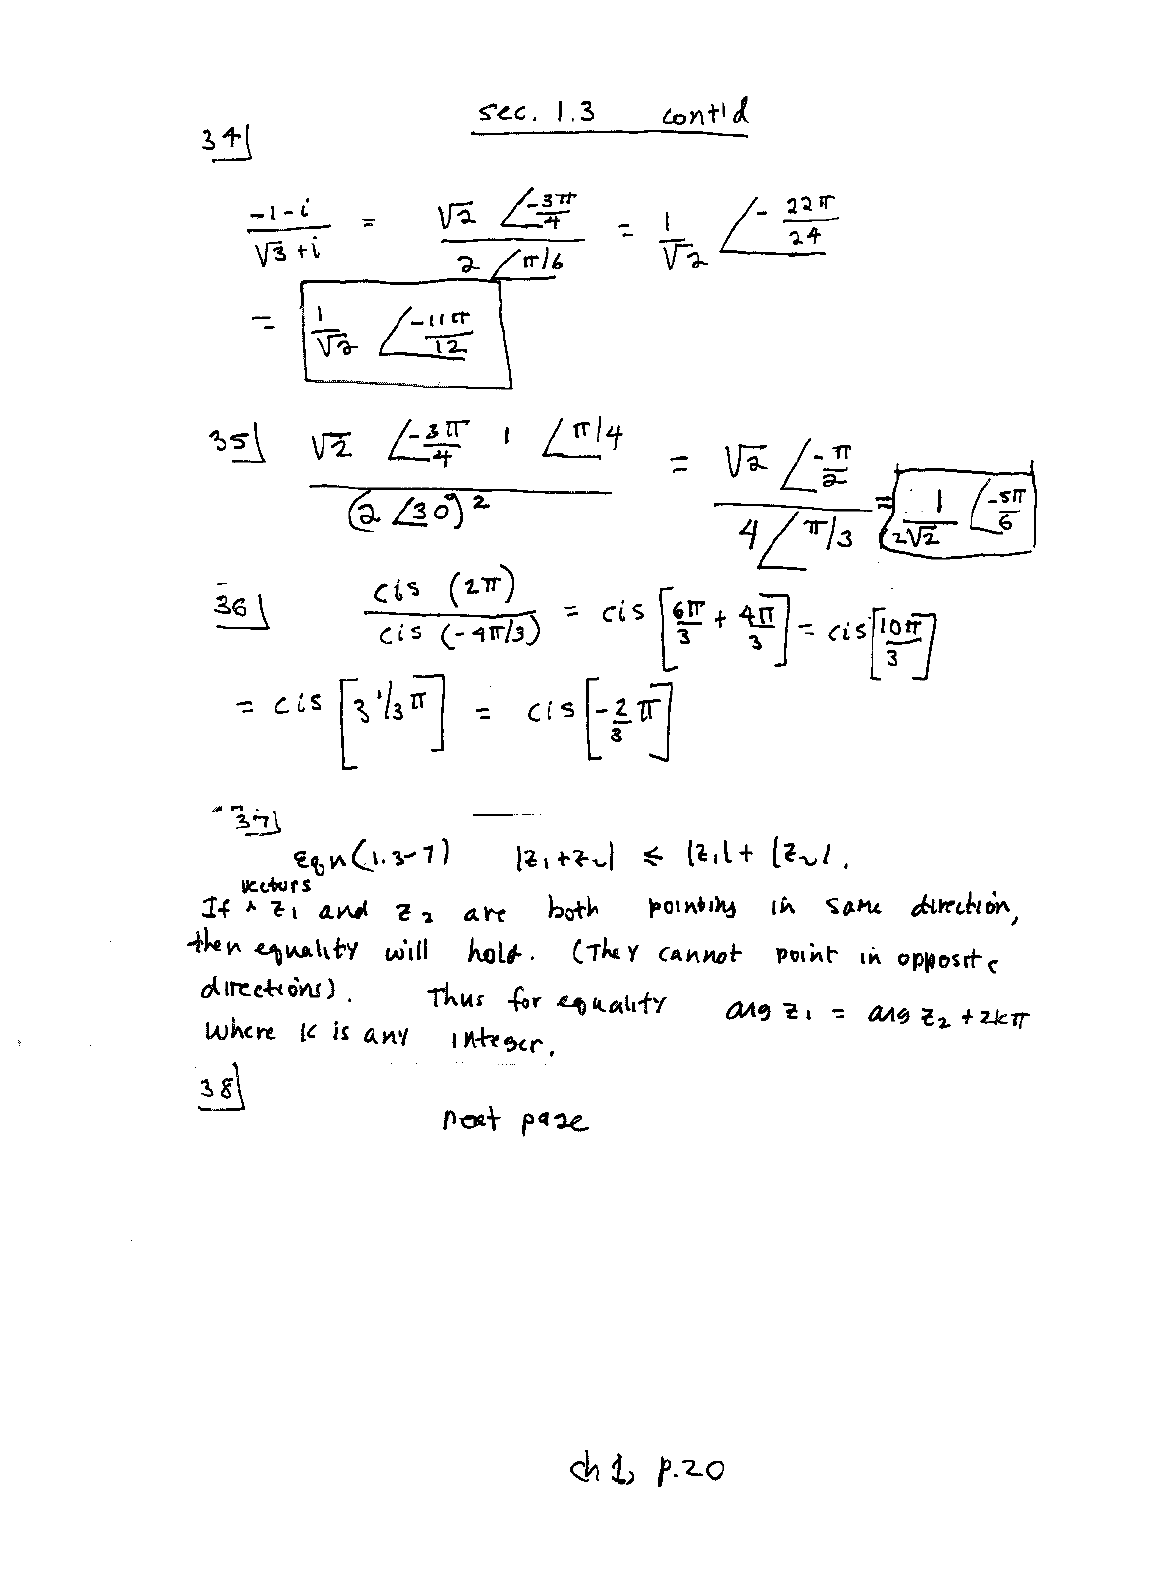 sec. 1.3 cont'd
34
(-1-i)/(√3+i) = (√2 ∠-3π/4)/(2 ∠π/6) = 1/√2 ∠-22π/24
= 1/√2 ∠-11π/12
35 (√2 ∠-3π/4 1 ∠π/4)/(2 ∠30°)² = (√2 ∠-π/2)/(4 ∠π/3) = 1/(2√2) ∠-5π/6
36 cis (2π)/cis (-4π/3) = cis [6π/3 + 4π/3] = cis [10π/3]
= cis [3 1/3 π] = cis [-2/3 π]
37
Eqn (1.3-7) |z₁+z₂| ≤ |z₁| + |z₂|.
If ^vectors z₁ and z₂ are both pointing in same direction,
then equality will hold. (They cannot point in opposite
directions). Thus for equality arg z₁ = arg z₂ + 2kπ
where k is any integer.
38
next page
ch 1, p.20